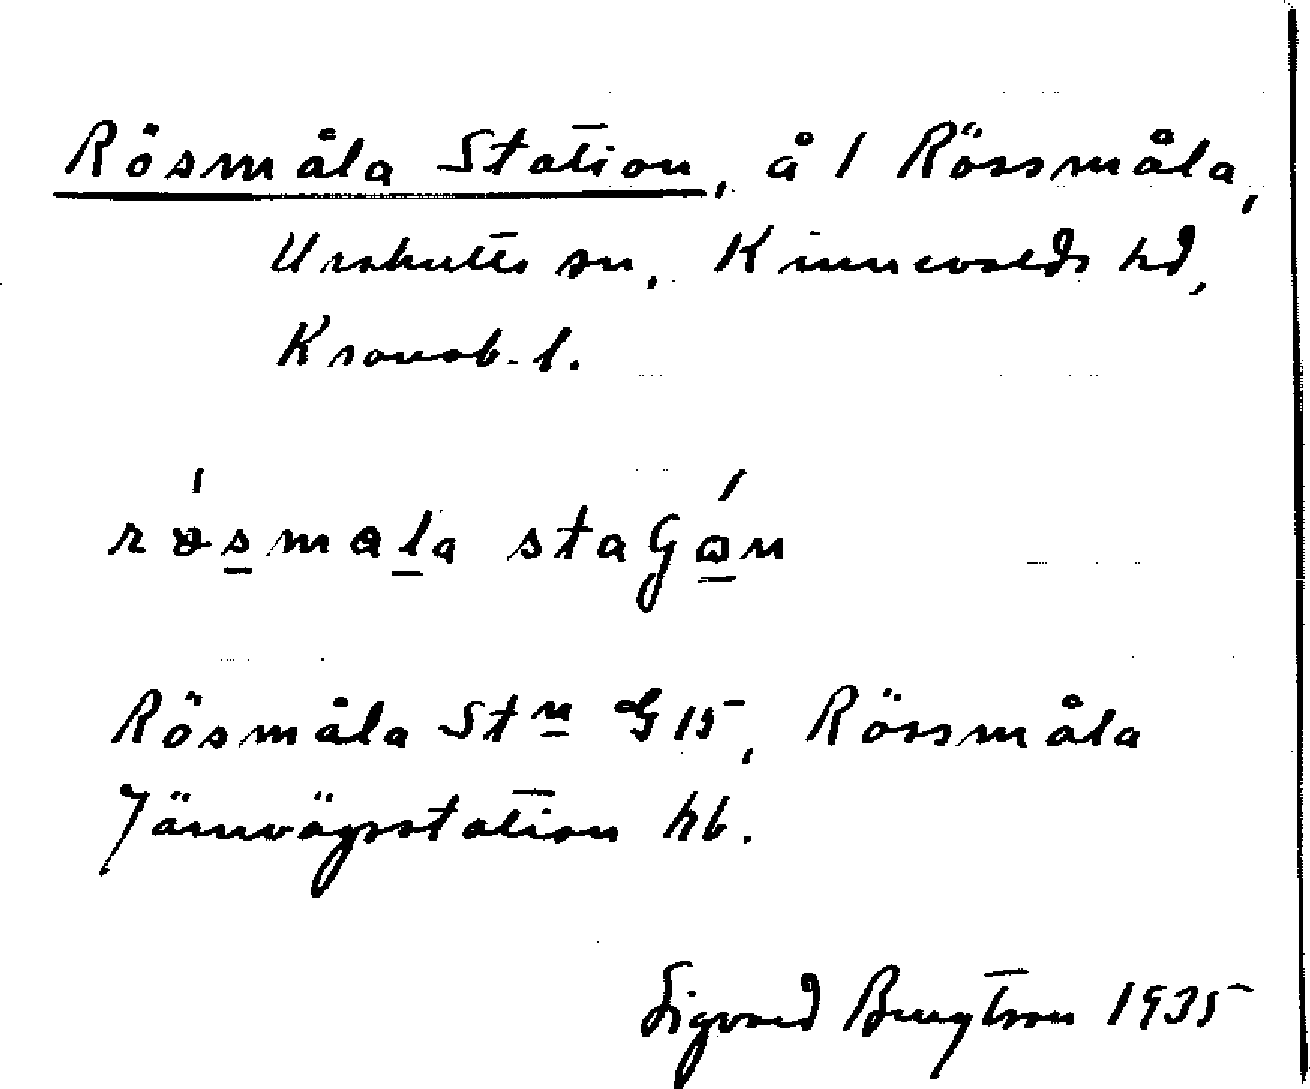 Rösmåla Station, å 1 Rössmåla,
Urshults sn, Kinnevalds hd,
Kronob. l.
rǿsmala staGán
Rösmåla Stn G15, Rössmåla
Järnvägsstation hb.
Sigvard 1935